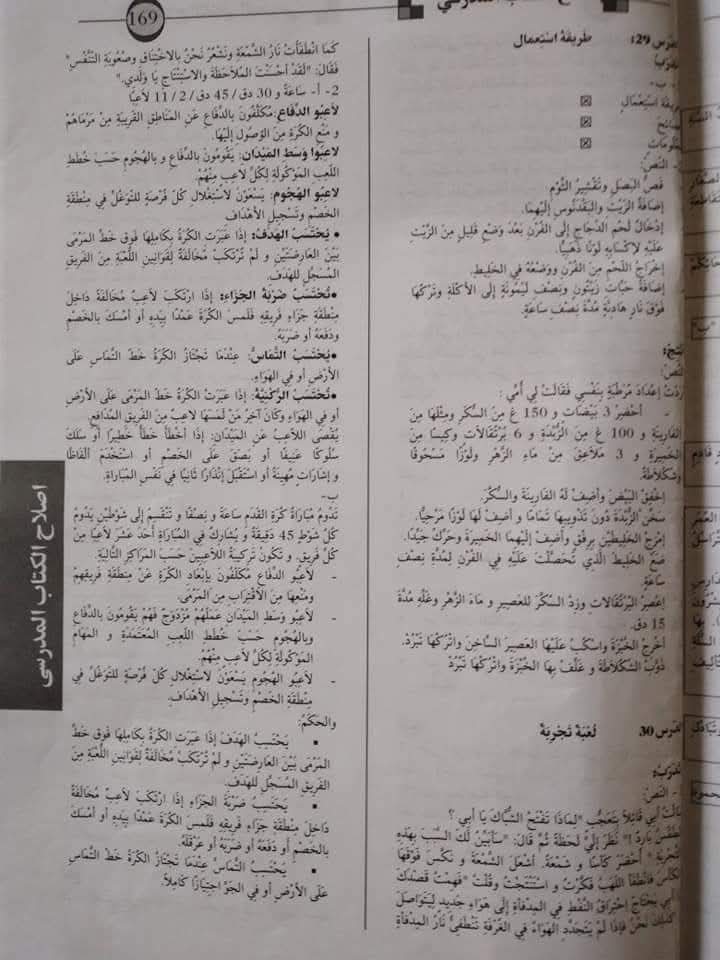 169
الدرس 29: طريقة استعمال
- ب -
طريقة استعمال ☒
نصائح ☒
معلومات ☒
- النص:
قص البصل وتقشير الثوم
إضافة الزيت والبقدنوس إليهما.
إدخال لحم الدجاج إلى الفرن بعد وضع قليل من الزيت
عليه لإكسابه لونا ذهبيا.
إخراج اللحم من الفرن ووضعه في الخليط.
إضافة حبات زيتون ونصف ليمونة إلى الأكلة وتركها
فوق نار هادئة مدة نصف ساعة.
أنتج:
النص:
أردت إعداد مرطبة بنفسي فقالت لي أمي :
- أحضر 3 بيضات و 150 غ من السكر ومثلها من
الفارينة و 100 غ من الزبدة و 6 برتقالات وكيسا من
الخميرة و 3 ملاعق من ماء الزهر ولوزا مسحوقا
وشكلاطة.
إخفق البيض وأضف له الفارينة والسكر.
سخن الزبدة دون تذويبها تماما و أضف لها لوزا مرحيا.
إمزج الخليطين برفق وأضف إليهما الخميرة وحرك جيدا.
ضع الخليط الذي تحصلت عليه في الفرن لمدة نصف
ساعة.
إعصر البرتقالات وزد السكر للعصير و ماء الزهر وغله مدة
15 دق.
أخرج الخبزة واسكب عليها العصير الساخن واتركها تبرد.
ذوب الشكلاطة و غلف بها الخبزة واتركها تبرد
الدرس 30 لعبة تجربة
- النص:
سألت أبي قائلا بتعجب "لماذا تفتح الشباك يا أبي ؟
الطقس بارد !" نظر إلي لحظة ثم قال: "سأبين لك السبب بهذه
التجربة" أحضر كأسا و شمعة. أشعل الشمعة و نكس فوقها
الكأس فانطفأ اللهب ففكرت و استنتجت وقلت "فهمت قصدك
يا أبي يحتاج احتراق النفط في المدفأة إلى هواء جديد ليتواصل
كذلك نحن فإذا لم يتجدد الهواء في الغرفة تنطفئ نار المدفأة
كما انطفأت نار الشمعة ونشعر نحن بالاختناق وصعوبة التنفس"
فقال: "لقد أحسنت الملاحظة والاستنتاج يا ولدي."
2- أ- ساعة و 30 دق/ 45 دق/ 2/ 11 لاعبا
لاعبو الدفاع: مكلفون بالدفاع عن المناطق القريبة من مرماهم
و منع الكرة من الوصول إليها.
لاعبوا وسط الميدان: يقومون بالدفاع و بالهجوم حسب خطط
اللعب الموكولة لكل لاعب منهم.
لاعبو الهجوم: يسعون لاستغلال كل فرصة للتوغل في منطقة
الخصم وتسجيل الأهداف
• يحتسب الهدف: إذا عبرت الكرة بكاملها فوق خط المرمى
بين العارضتين و لم ترتكب مخالفة لقوانين اللعبة من الفريق
المسجل للهدف.
• تحتسب ضربة الجزاء: إذا ارتكب لاعب مخالفة داخل
منطقة جزاء فريقه فلمس الكرة عمدا بيده أو أمسك بالخصم
ودفعه أو ضربه.
• يحتسب التماس: عندما تجتاز الكرة خط التماس على
الأرض أو في الهواء.
• تحتسب الركنية: إذا عبرت الكرة خط المرمى على الأرض
أو في الهواء وكان آخر من لمسها لاعب من الفريق المدافع.
يقصى اللاعب عن الميدان: إذا أخطأ خطأ خطيرا أو سلك
سلوكا عنيفا أو بصق على الخصم أو استخدم ألفاظا
و إشارات مهينة أو استقبل إنذارا ثانيا في نفس المباراة.
ب-
تدوم مباراة كرة القدم ساعة و نصفا و تنقسم إلى شوطين يدوم
كل شوط 45 دقيقة و يشارك في المباراة أحد عشر لاعبا من
كل فريق. و تكون تركيبة اللاعبين حسب المراكز التالية.
- لاعبو الدفاع مكلفون بإبعاد الكرة عن منطقة فريقهم
ومنعها من الاقتراب من المرمى.
- لاعبو وسط الميدان عملهم مزدوج فهم يقومون بالدفاع
وبالهجوم حسب خطط اللعب المعتمدة و المهام
الموكولة لكل لاعب منهم.
- لاعبو الهجوم يسعون لاستغلال كل فرصة للتوغل في
منطقة الخصم و تسجيل الأهداف.
والحكم:
▪ يحتسب الهدف إذا عبرت الكرة بكاملها فوق خط
المرمى بين العارضتين و لم ترتكب مخالفة لقوانين اللعبة من
الفريق المسجل للهدف.
▪ يحتسب ضربة الجزاء إذا ارتكب لاعب مخالفة
داخل منطقة جزاء فريقه فلمس الكرة عمدا بيده أو أمسك
بالخصم أو دفعه أو ضربه أو عرقله.
▪ يحتسب التماس عندما تجتاز الكرة خط التماس
على الأرض أو في الجو اجتيازا كاملا.
اصلاح الكتاب المدرسي